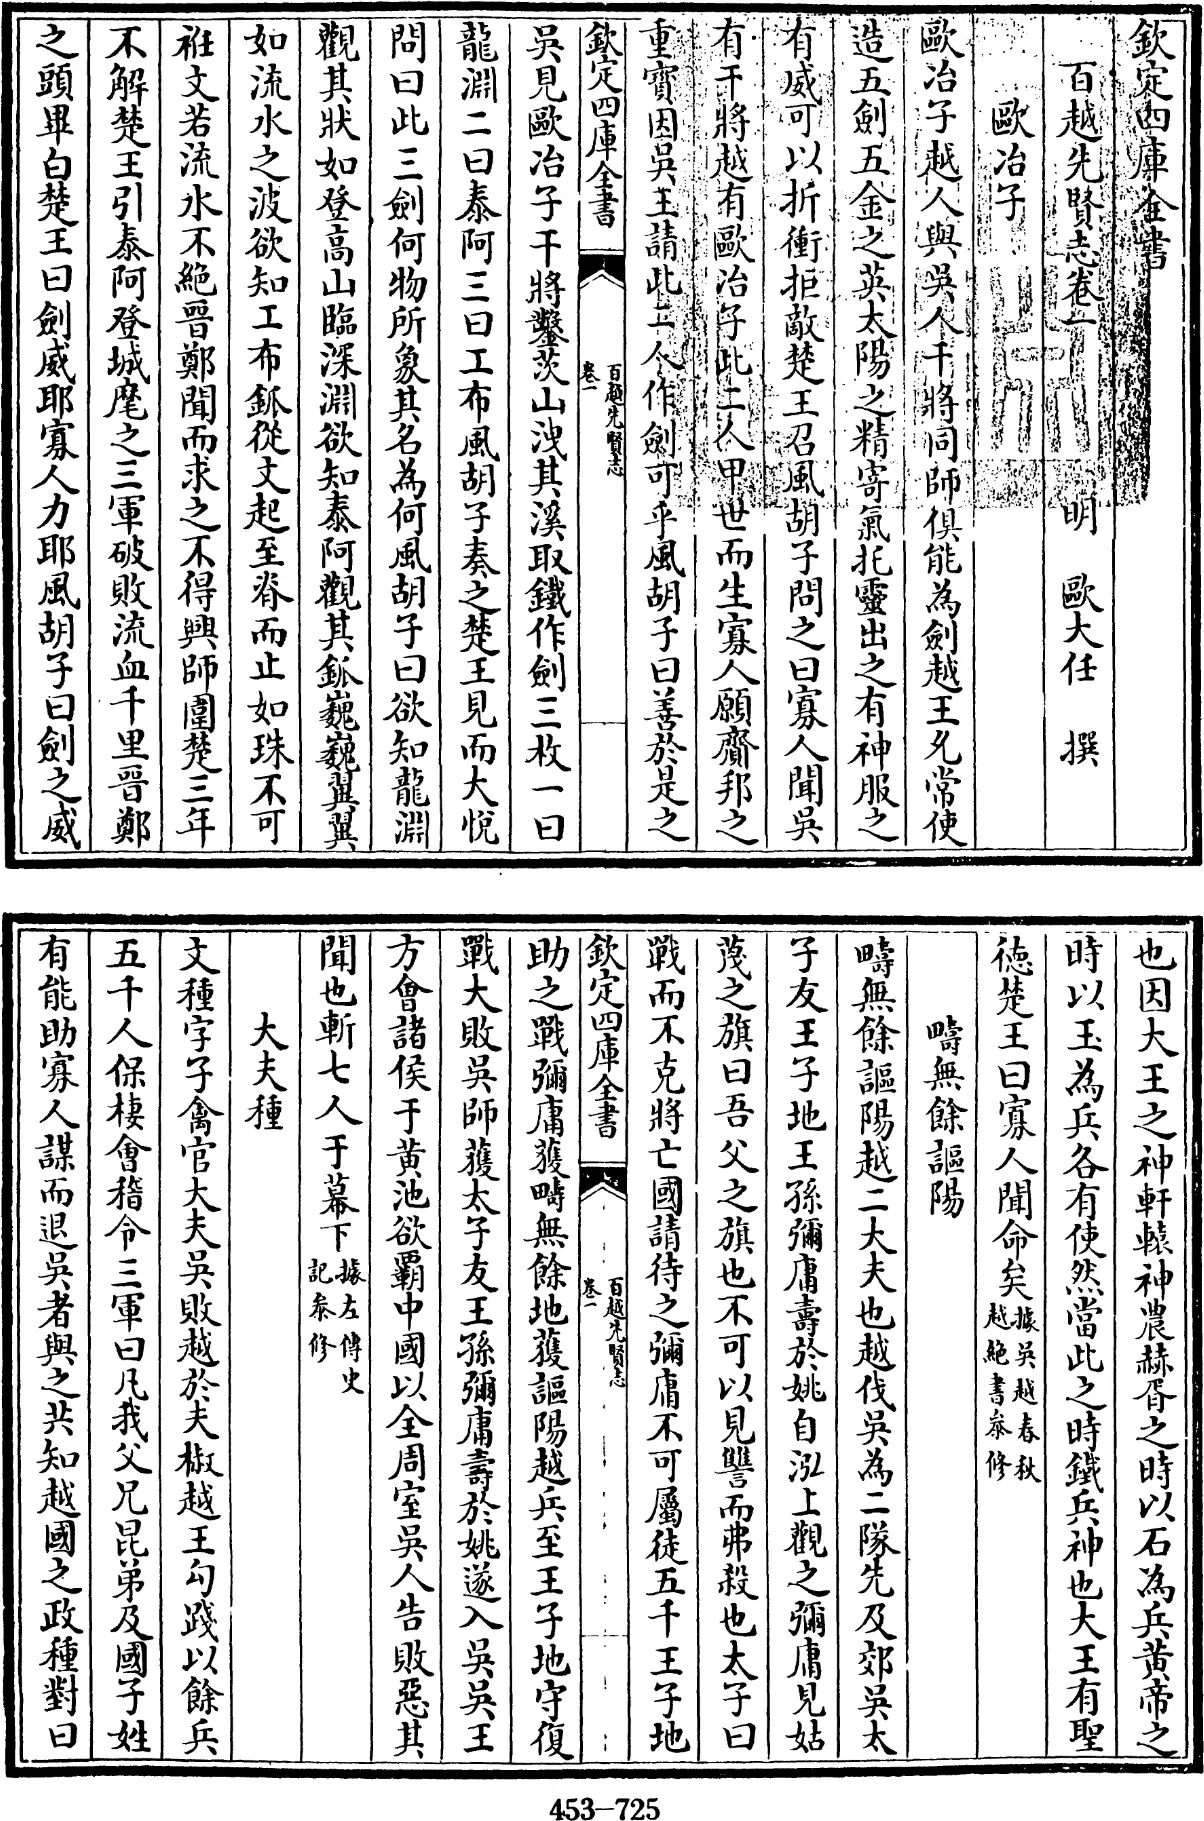 欽定四庫全書
百越先賢志卷一
明 歐大任 撰
歐冶子
歐冶子越人與吳人干將同師俱能為劍越王允常使
造五劍五金之英太陽之精寄氣托靈出之有神服之
有威可以折衝拒敵楚王召風胡子問之曰寡人聞吳
有干將越有歐冶子此二人甲世而生寡人願齎邦之
重寶因吳王請此二人作劍可乎風胡子曰善於是之
欽定四庫全書
百越先賢志
卷一
吳見歐冶子干將鑿茨山洩其溪取鐵作劍三枚一曰
龍淵二曰泰阿三曰工布風胡子奏之楚王見而大悅
問曰此三劍何物所象其名為何風胡子曰欲知龍淵
觀其狀如登高山臨深淵欲知泰阿觀其鈲巍巍翼翼
如流水之波欲知工布鈲從文起至脊而止如珠不可
袵文若流水不絶晉鄭聞而求之不得興師圍楚三年
不解楚王引泰阿登城麾之三軍破敗流血千里晉鄭
之頭畢白楚王曰劍威耶寡人力耶風胡子曰劍之威
也因大王之神軒轅神農赫胥之時以石為兵黄帝之
時以玉為兵各有使然當此之時鐵兵神也大王有聖
德楚王曰寡人聞命矣據吳越春秋
越絶書叅修
疇無餘謳陽
疇無餘謳陽越二大夫也越伐吳為二隊先及郊吳太
子友王子地王孫彌庸壽於姚自泓上觀之彌庸見姑
蔑之旗曰吾父之旗也不可以見讐而弗殺也太子曰
戰而不克將亡國請待之彌庸不可屬徒五千王子地
欽定四庫全書
百越先賢志
卷一
助之戰彌庸獲疇無餘地獲謳陽越兵至王子地守復
戰大敗吳師獲太子友王孫彌庸壽於姚遂入吳吳王
方會諸侯于黄池欲覇中國以全周室吳人告敗惡其
聞也斬七人于幕下據左傳史
記叅修
大夫種
文種字子禽官大夫吳敗越於夫椒越王勾踐以餘兵
五千人保棲會稽令三軍曰凡我父兄昆弟及國子姓
有能助寡人謀而退吳者與之共知越國之政種對曰
453-725